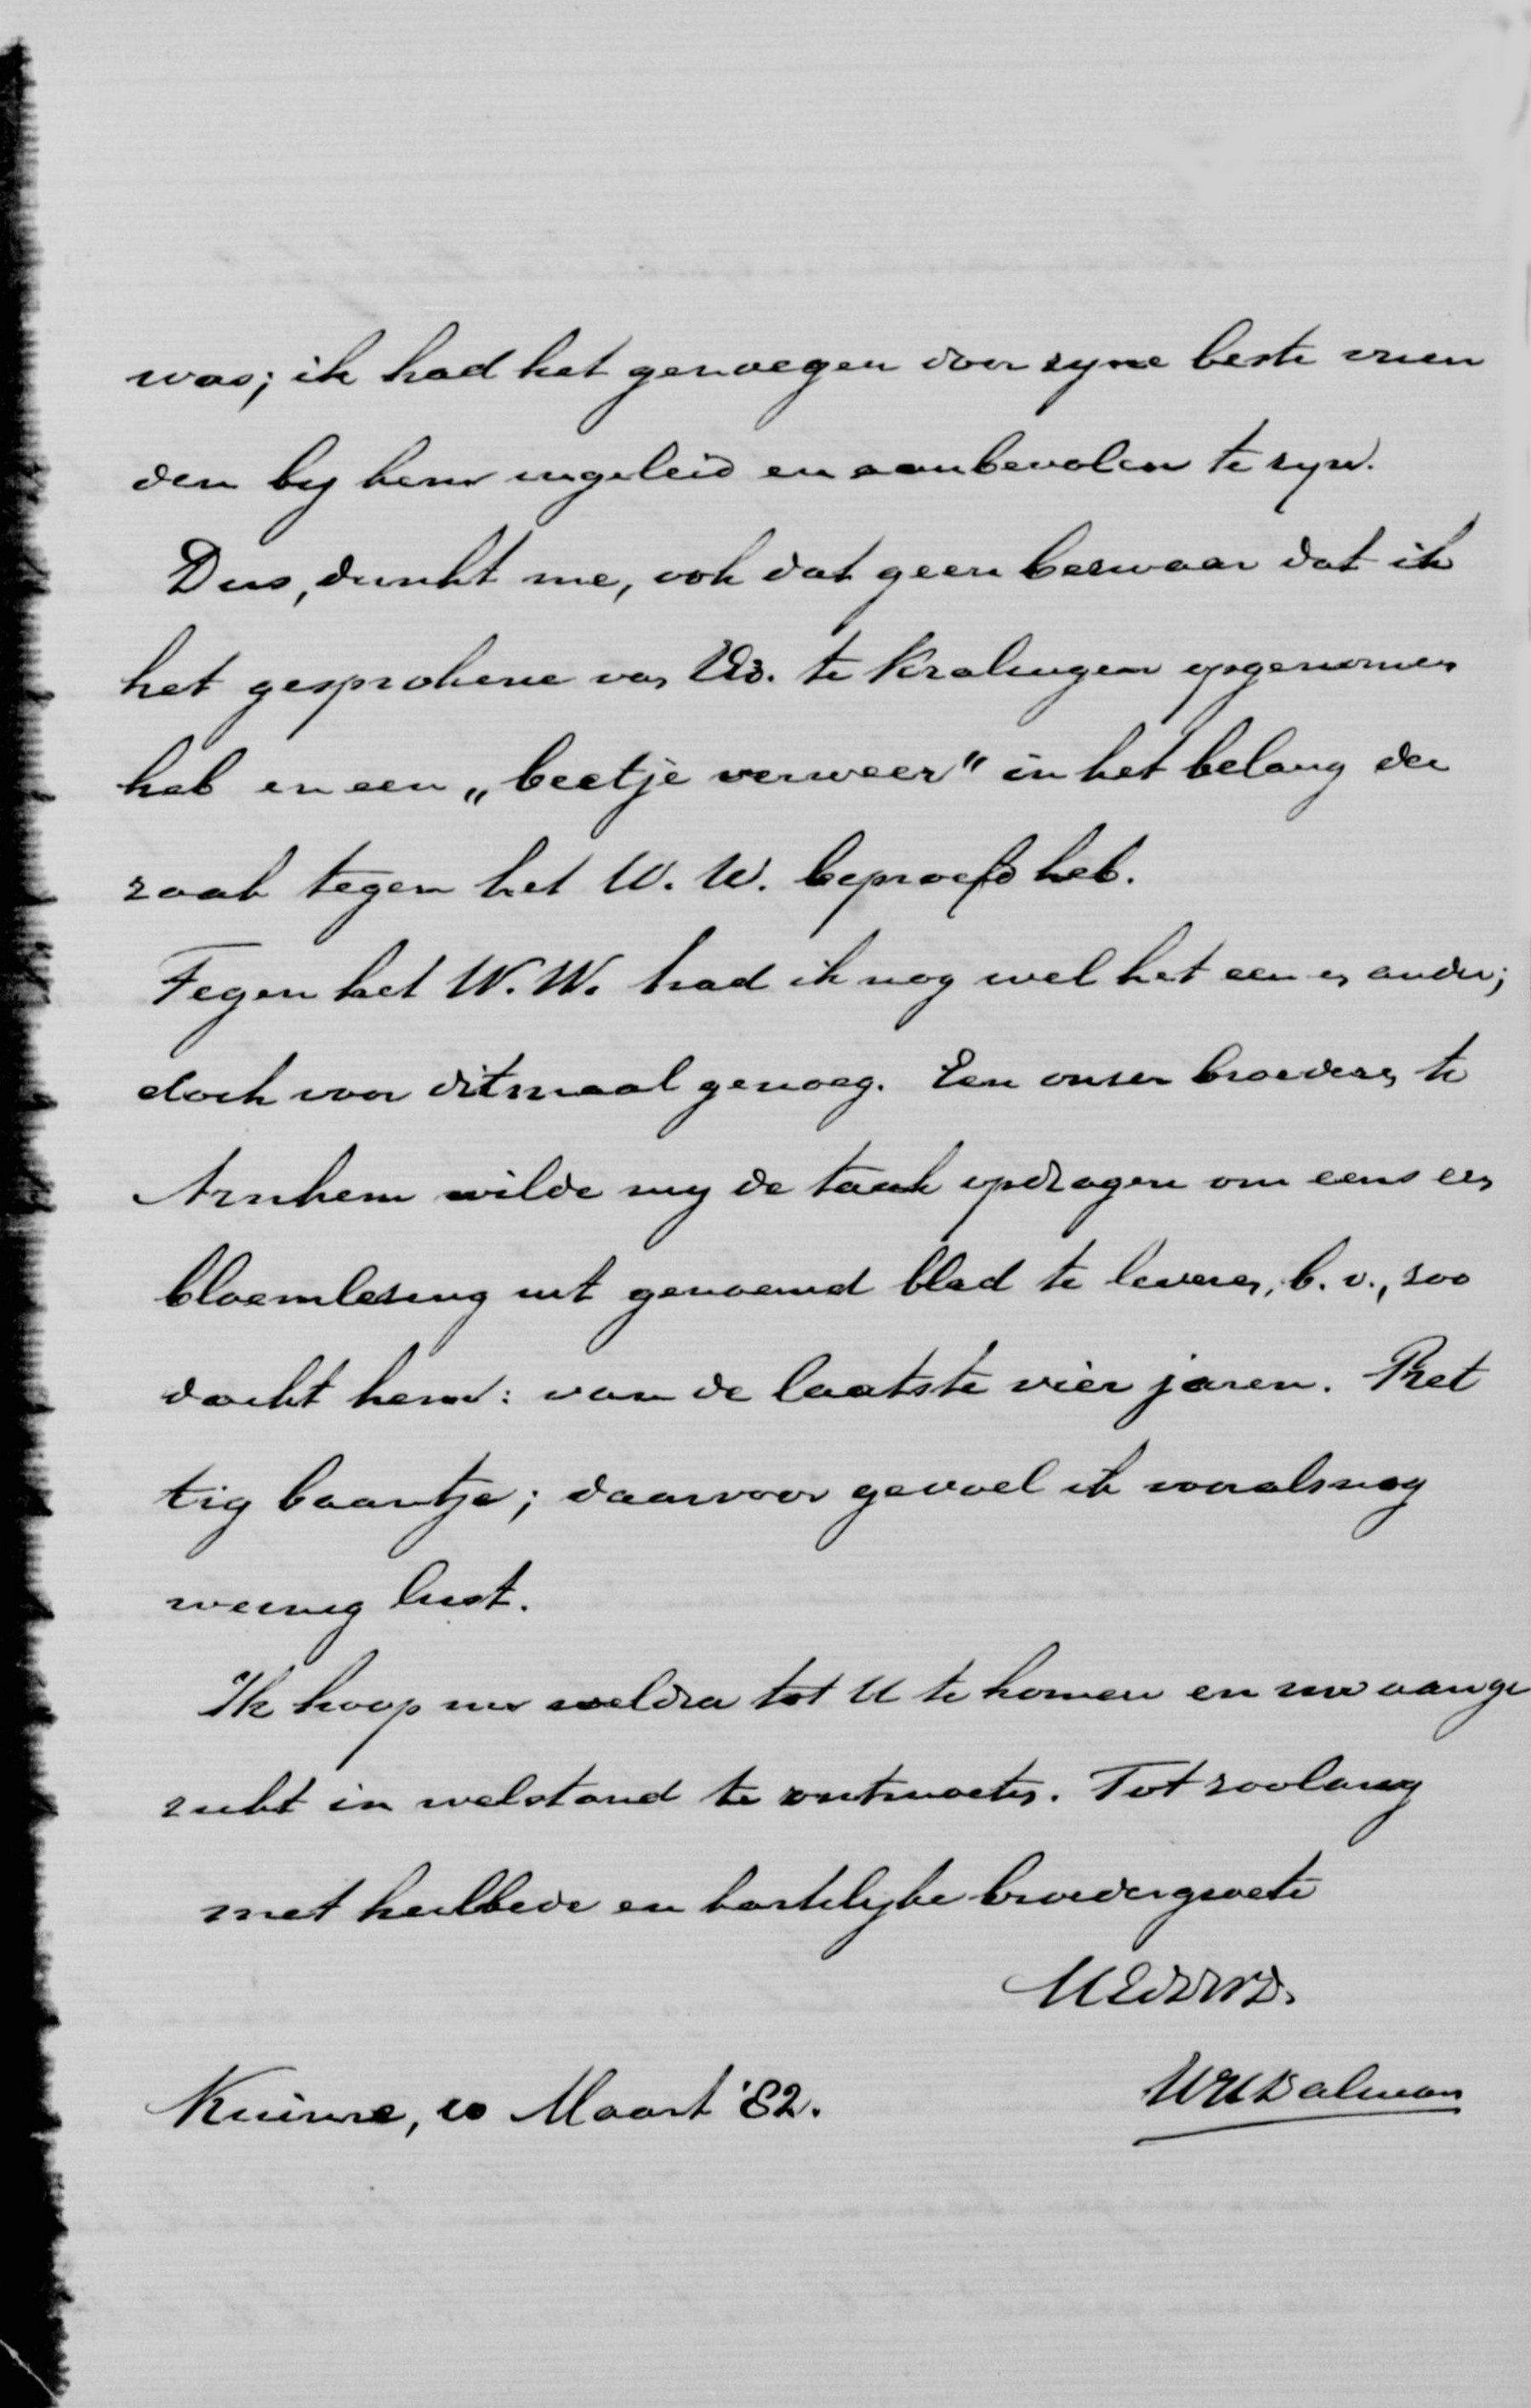 was; ik had het genoegen door zyne beste vrien
den by hem ingeleid en aanbevolen te zyn.
Dus, dunkt me, ook dat geen bezwaar dat ik
het gesprokene van Ds. te Kralingen opgenomen
heb en een „beetje verweer" in het belang der
zaak tegen het W. W. beproefd heb.
Tegen het W. W. had ik nog wel het een en ander;
doch voor ditmaal genoeg. Een onzer broeders te
Arnhem wilde my de taak opdragen om eens een
bloemlezing uit genoemd blad te leveren, b. v., zoo
dacht hem: van de laatste vier jaren. Pret
tig baantje; daarvoor gevoel ik vooralsnog
weinig lust.
Ik hoop nu weldra tot U te komen en uw aange
zicht in welstand te ontmoeten. Tot zoolang
met heilbede en hartelyke broedergroete
UEdzwd.
Kuinre, 10 Maart '82.